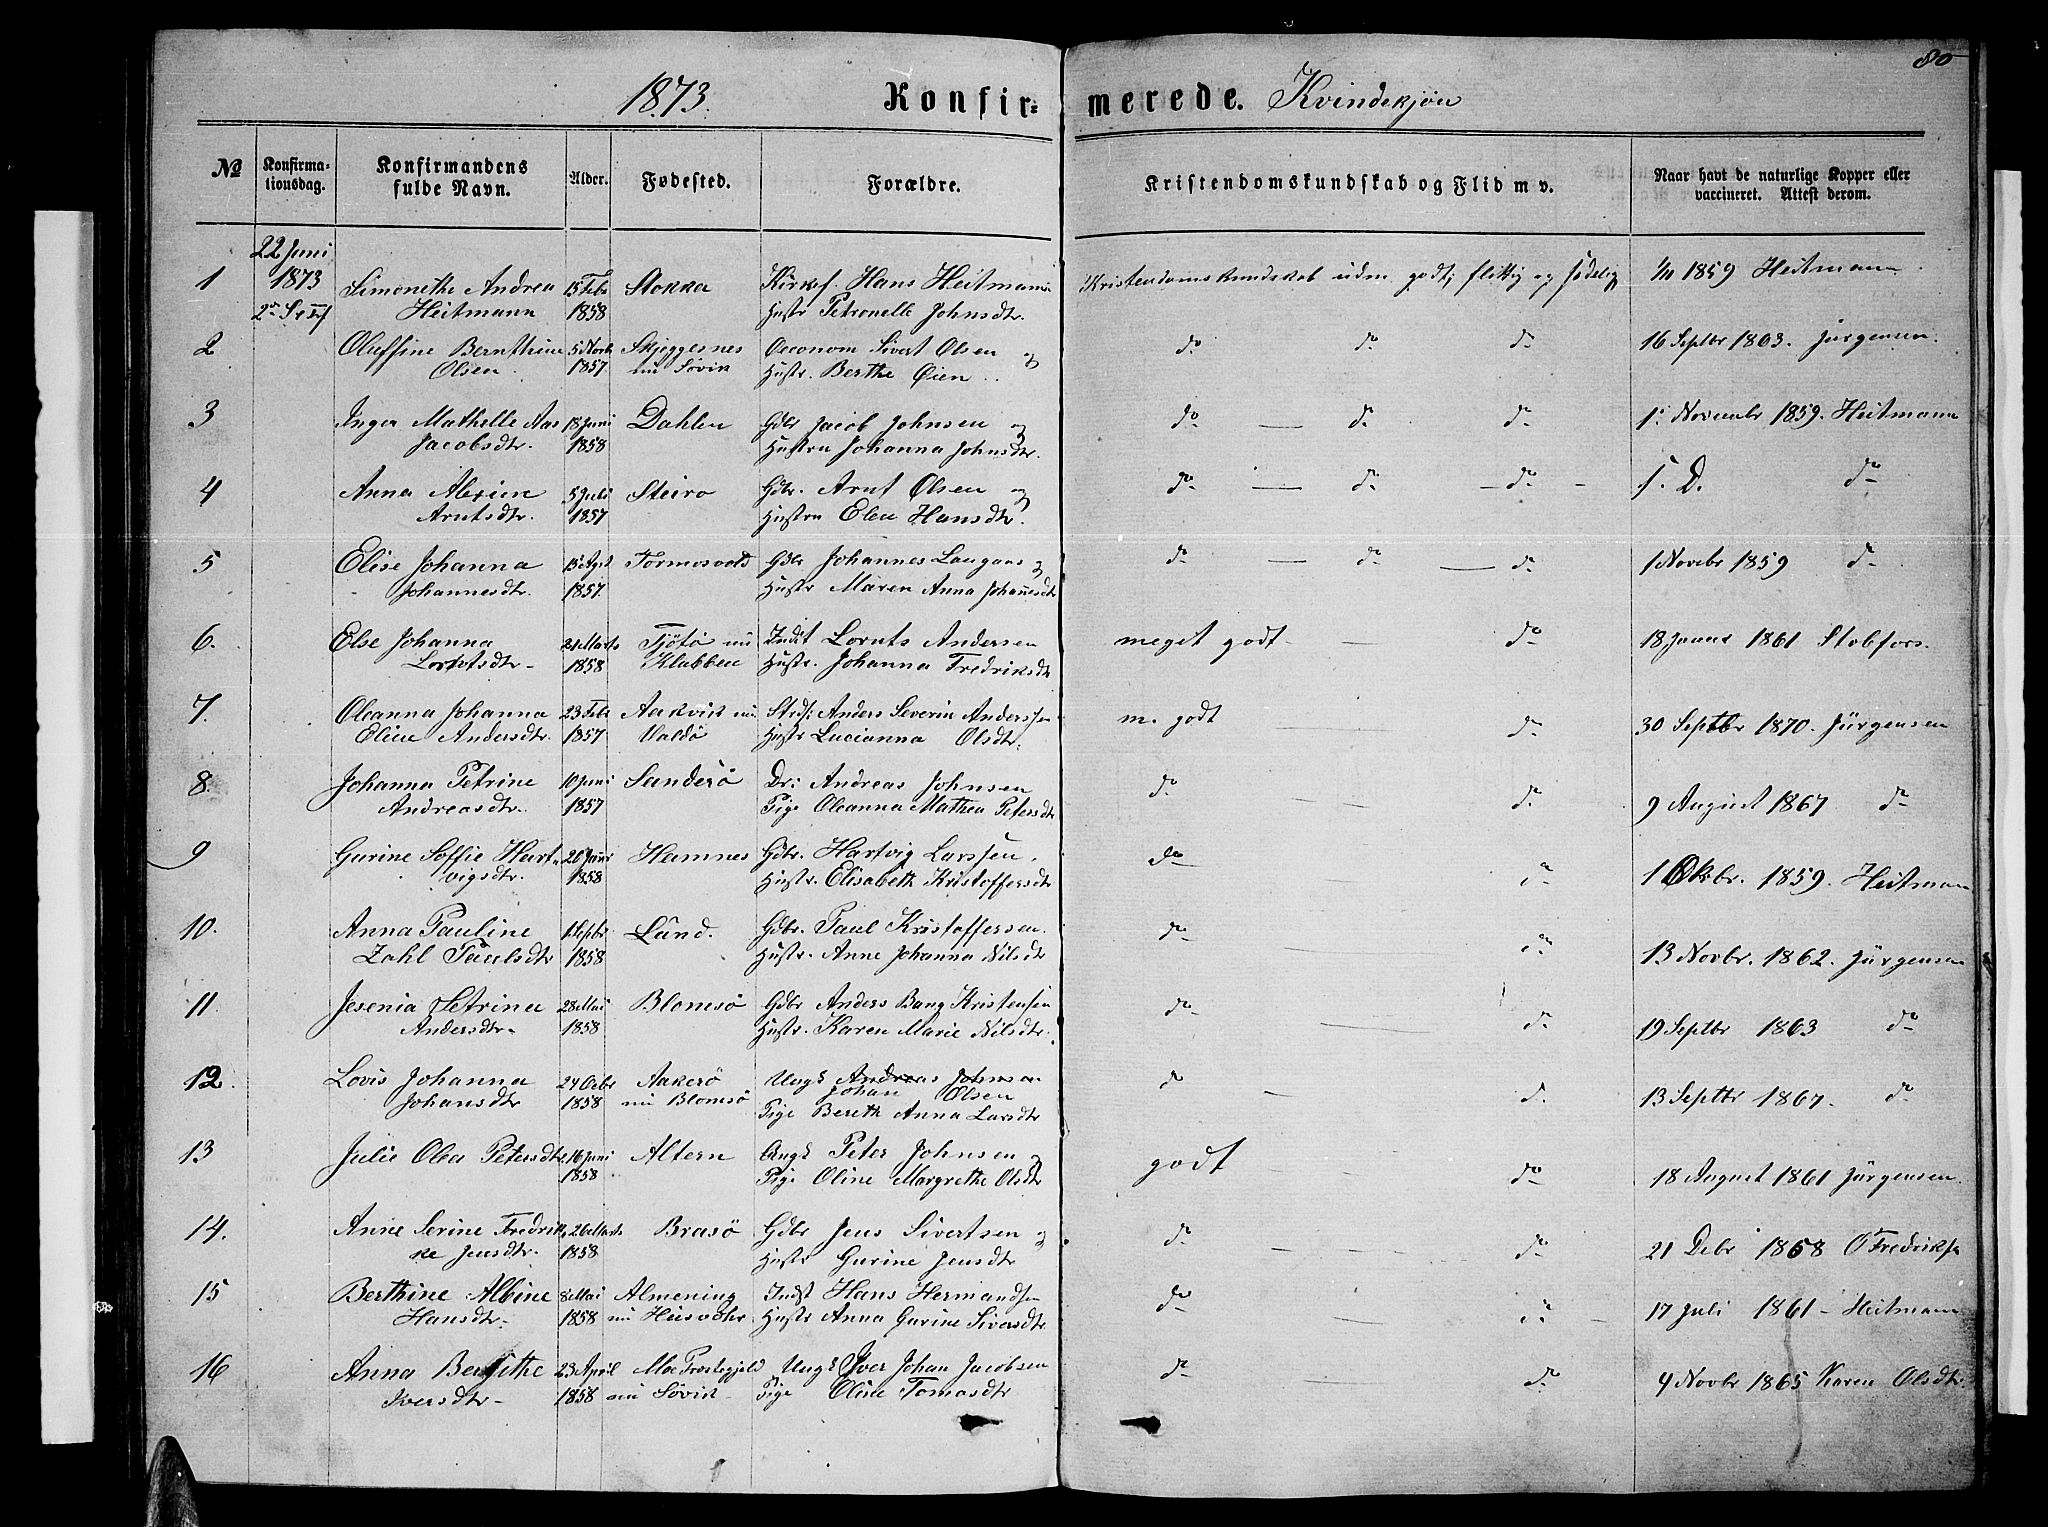 80
1873. Konfirmerede. Kvindekjøn
No Konfirmationsdag. Konfirmandens fulde Navn. Alder. Fødested. Forældre. Kristendomskundskab og Flid m v. Naar havt de naturlige Kopper eller vaccineret. Attest derom.
22 Juni
1 1873 Simonethe Andrea 15 Febr Stokka Kirkes. Hans Heitmann Kristendomskundskab uden godt; flittig og sødelig 1/11 1859 Heitmann
Heitmann 1858 Hustr Petronelle Johnsdtr.
2 Oluffine Bernthine 5 Novb Skjeggesnes Oeconom Sivert Olsen og do do do 16 Septbr 1863. Jürgensen.
Olsen 1857 nu Søvik Hustr. Berthe Øien
3 Inger Mathelle Aas 18 Juni Dahlen Gdbr Jacob Johnsen og do do do 1. Novembr 1859. Heitmann
Jacobsdtr. 1858 Hustru Johanna Johnsdtr.
4 Anna Alexine 5 Juli Steiro Gdbr. Arnt Olsen og do do do s. D. do
Arntsdtr. 1857 Hustru Elen Hansdtr.
5 Elise Johanna 15 Agst Formosvold Gdbr Johannes Laugans og do do do 1 Novbr 1859 do
Johannesdtr. 1857. Hustr Maren Anna Johannesdtr
6. Else Johanna 21 Marts Tjøtø nu Indst Lornts Andersen meget godt do 18 Januar 1861 Stobfors.
Lorntsdtr 1858 Klubben Hustr. Johanna Fredriksdtr
7. Oleanna Johanna 23 Febr Aakvik nu Strds: Anders Severin Anderssen m. godt do 30 Septbr 1870. Jürgensen
Eline Andersdtr. 1857. Valdø Hustr Lucianna Olsdtr.
8. Johanna Petrine 10 Juni Sanderø Dr: Andreas Johnsen do do 9 August 1867 do
Andreasdtr. 1857 Pige Oleanna Mathea Petersdtr
9 Gurine Soffie Hart- 20 Janr Hamnes Gdbr. Hartvig Larssen. do do 1 Okbr. 1859. Heitmann
vigsdtr. 1858 Hustr. Elisabeth Kristoffersdtr
10. Anna Pauline 1 Septbr Lund. Gdbr. Paul Kristoffersen. do do 13 Novbr. 1862. Jürgensen
Zahl Paulsdtr 1858 Hustr. Anne Johanna Nilsdtr
11. Jesenia Petrina 28 Mai Blomsø Gdbr Anders Bang Kristensen do do 19 Septbr 1863 do
Andersdtr 1858 Hustr. Karen Marie Nilsdtr.
12. Lovis Johanna 24 Octbr Aakerø Ungk Andreas Johnsen do do 13 Septbr 1867. do
Johansdtr 1858 nu Blomsø Johan Olsen
Pige Bereth Anna Larsdtr
13 Julie Olea Petersdtr. 16 Juni Altern Ungk Peter Johnsen og godt do 18 August 1861 Jürgensen.
1858 Pige Oline Margrethe Olsdtr
14. Anne Serine Fredrik- 26 Marts Brasø Gdbr Jens Sivertsen og do do 21 Debr 1868 O Fredriksen
ke Jensdtr. 1858. Hustr Gurine Jensdtr
15 Berthine Albine 8 Mai Almening Indst Hans Hermandsen do do 17 Juli 1861 Heitmann
Hansdtr 1858 nu Hustr Anna Gurine Siversdtr
16 Anna Bergithe 23 April Moe Præstegjeld Ungk Iver Johan Jacobsen do do 4 Novbr 1865 Karen Olsdtr.
Iversdtr 1858 nu Søvik Pige Oline Tomasdtr